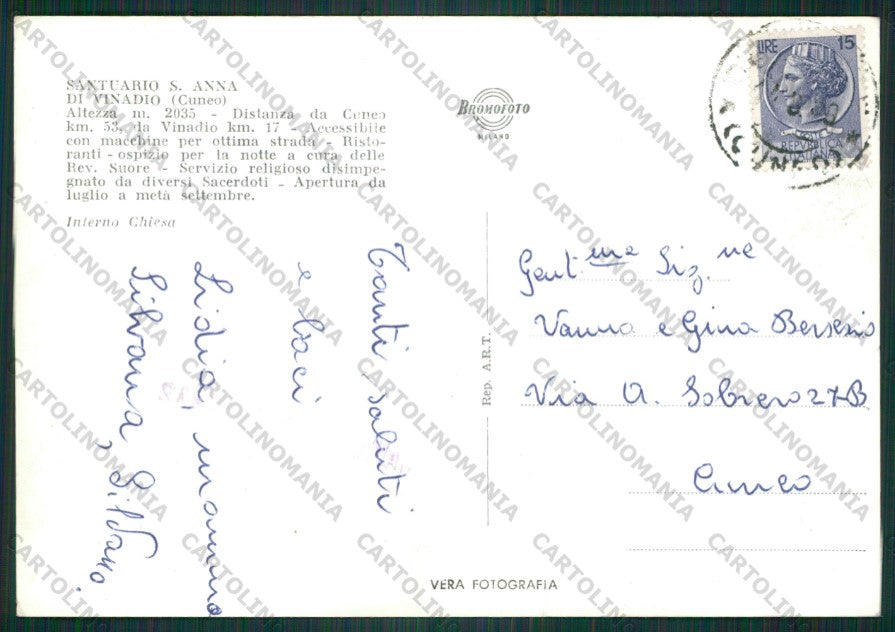 SANTUARIO S. ANNA
DI VINADIO (Cuneo)
Altezza m. 2035 - Distanza da Cuneo
km. 53, da Vinadio km. 17 - Accessibile
con macchine per ottima strada - Risto-
ranti - ospizio per la notte a cura delle
Rev. Suore - Servizio religioso disimpe-
gnato da diversi Sacerdoti - Apertura da
luglio a metà settembre.
Interno Chiesa
BROMOFOTO
MILANO
LIRE 15
POSTE
REPVBBLICA
ITALIANA
(CUNEO)
Tanti saluti
e baci
Lidia, mamma
Silvana,
Rep. A.R.T.
Gent.me Sig.ne
Vanna e Gina Bersezio
Via A. Sobrero 27B
Cuneo
VERA FOTOGRAFIA
CARTOLINOMANIA